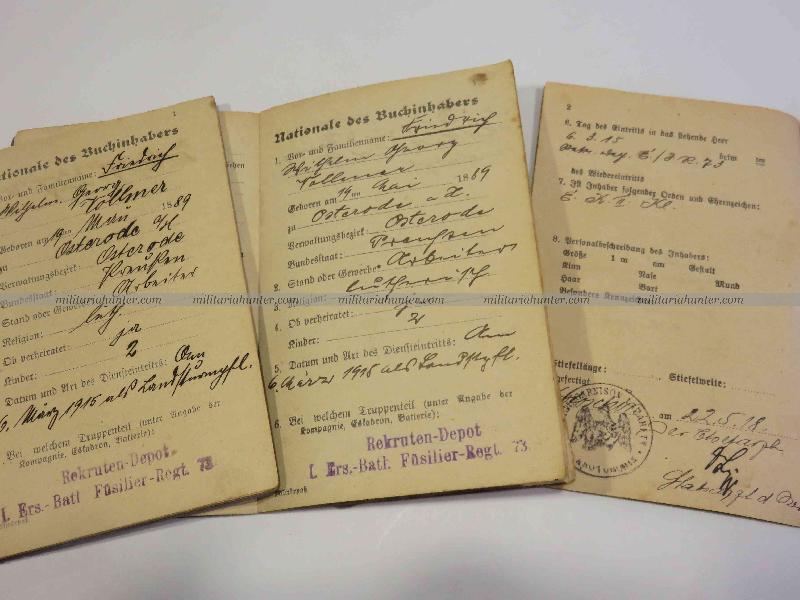 1
Nationale des Buchinhabers
Vor- und Familienname: Friedrich
Wilhelm Georg
Vollmer
Geboren am 19ten Mai 1889
zu Osterode a/H
Verwaltungsbezirk: Osterode
Bundesstaat: Preußen
Stand oder Gewerbe: Arbeiter
Religion:
Ob verheiratet: ja
Kinder: 2
Datum und Art des Diensteintritts: Am
6. März 1915 als Landsturmpfl.
Bei welchem Truppenteil (unter Angabe der
Kompagnie, Eskadron, Batterie):
Rekruten-Depot
I. Ers.-Batl. Füsilier-Regt. 73
Nationale des Buchinhabers
1. Vor- und Familienname: Friedrich
Wilhelm Georg
Vollmer
Geboren am 19ten Mai 1889
zu Osterode a. H.
Verwaltungsbezirk: Osterode
Bundesstaat: Preußen
2. Stand oder Gewerbe: Arbeiter
3. Religion: lutherisch
4. Ob verheiratet: ja
Kinder: 2
5. Datum und Art des Diensteintritts: Am
6. März 1915 als Landstpfl.
6. Bei welchem Truppenteil (unter Angabe der
Kompagnie, Eskadron, Batterie):
Rekruten-Depot
I. Ers.-Batl. Füsilier-Regt. 73
2
6. Tag des Eintritts in das stehende Heer
6. 3. 15
beim
des Wiedereintritts
7. Ist Inhaber folgender Orden und Ehrenzeichen:
E. K. II Kl.
8. Personalbeschreibung des Inhabers:
Größe 1 m cm Gestalt
Kinn Nase Mund
Haar Bart
Besondere Kennzeichen
Stiefellänge: Stiefelweite:
am 22.5.18
militariahunter.com militariahunter.com militariahunter.com militariahunter.com militariahunter.com